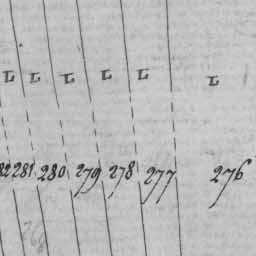 L L L L L L
281 280 279 278 277 276